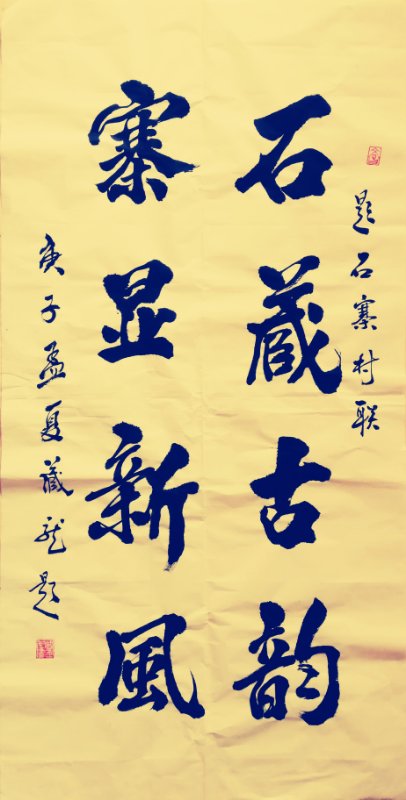 题石寨村联
石藏古韵
寨显新風
庚子孟夏藏龙题